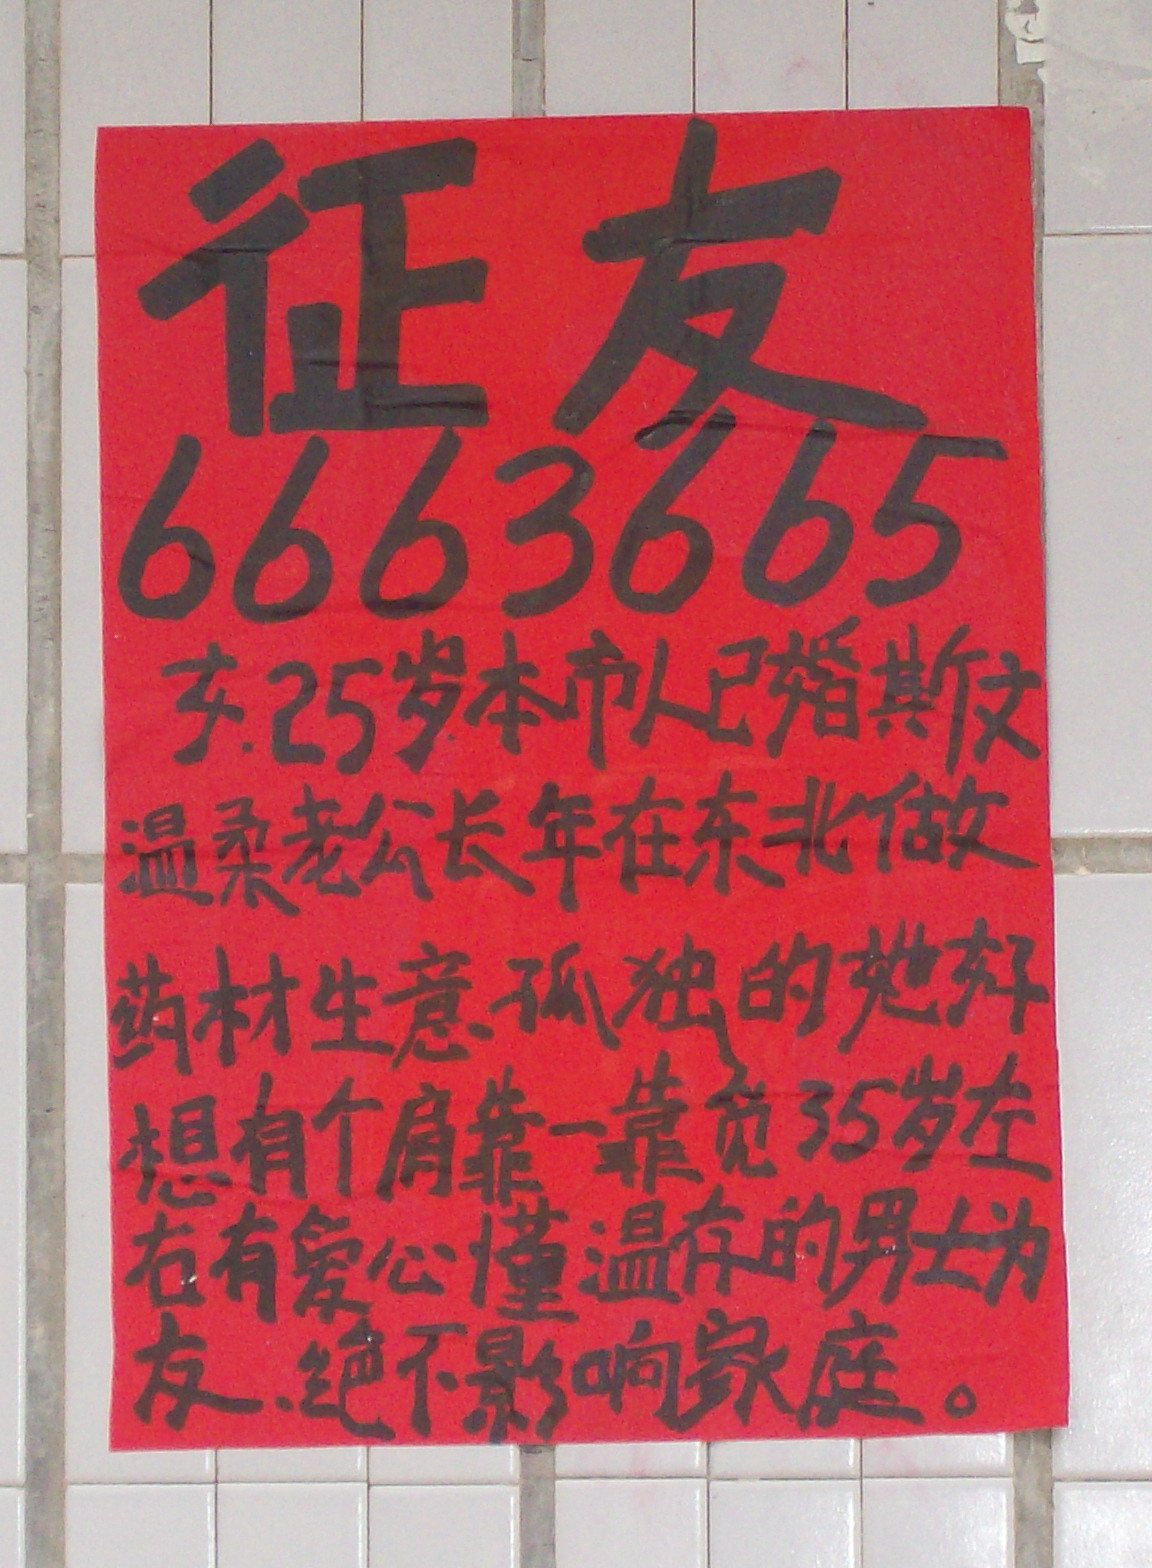 征友
6663665
女.25岁本市人已婚斯文
温柔老公长年在东北做
药材生意.孤独的她好
想有个肩靠一靠觅35岁左
右有爱心懂温存的男士为
友.绝不影响家庭。